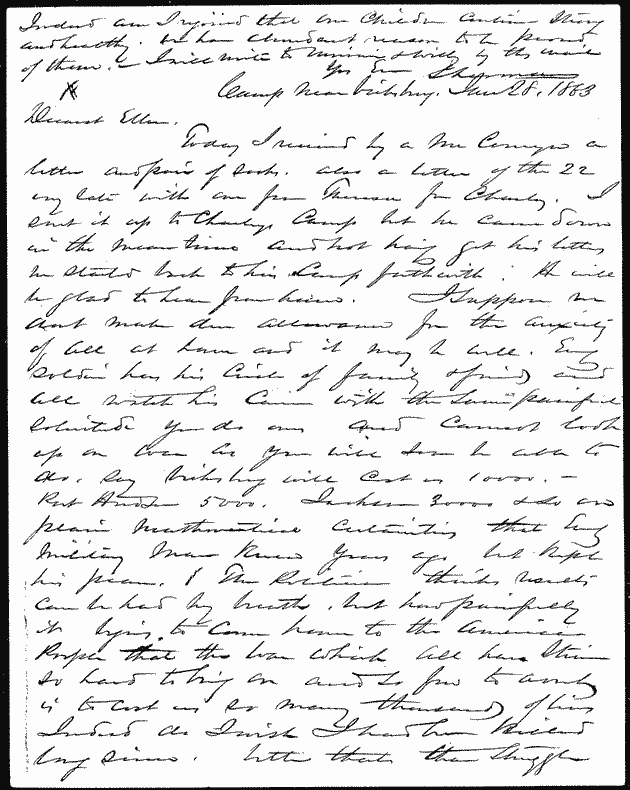 Indeed am I rejoiced that our Children continue Strong
and healthy. We have abundant reason to be proud
of them. I will write to Minnie & Willy by this mail
Yrs Ever Sherman
Camp near Vicksburg. Jan 28, 1863
Dearest Ellen.
Today I received by a Mr a
letter and pair of socks. also a letter of the 22
with one from Theresa for Charley. I
sent it up to Charleys Camp but he came down
in the mean time and not having got his letter
he started back to his Camp forthwith. He will
be glad to hear from home. I suppose we
dont make due allowance for the anxiety
of all at home and it may be well. Every
soldier has his Circle of family & friends and
all watch his Career with the same painful
solicitude you do ours and cannot look
upon war as you will soon be able to
do. say Vicksburg will Cost us 10000. —
Port Hudson 5000. Jackson 30000 & so on
plain Mathematical Certainties that Every
Military Man Knew Years ago but kept
his peace. The thinks results
can be had by breath. but how painfully
it begins to Come home to the American
People that the war which all have Striven
so hard to bring on and so few to avoid
is to Cost us so many thousands of lives
Indeed do I wish I had been Killed
long since. better that than Struggle